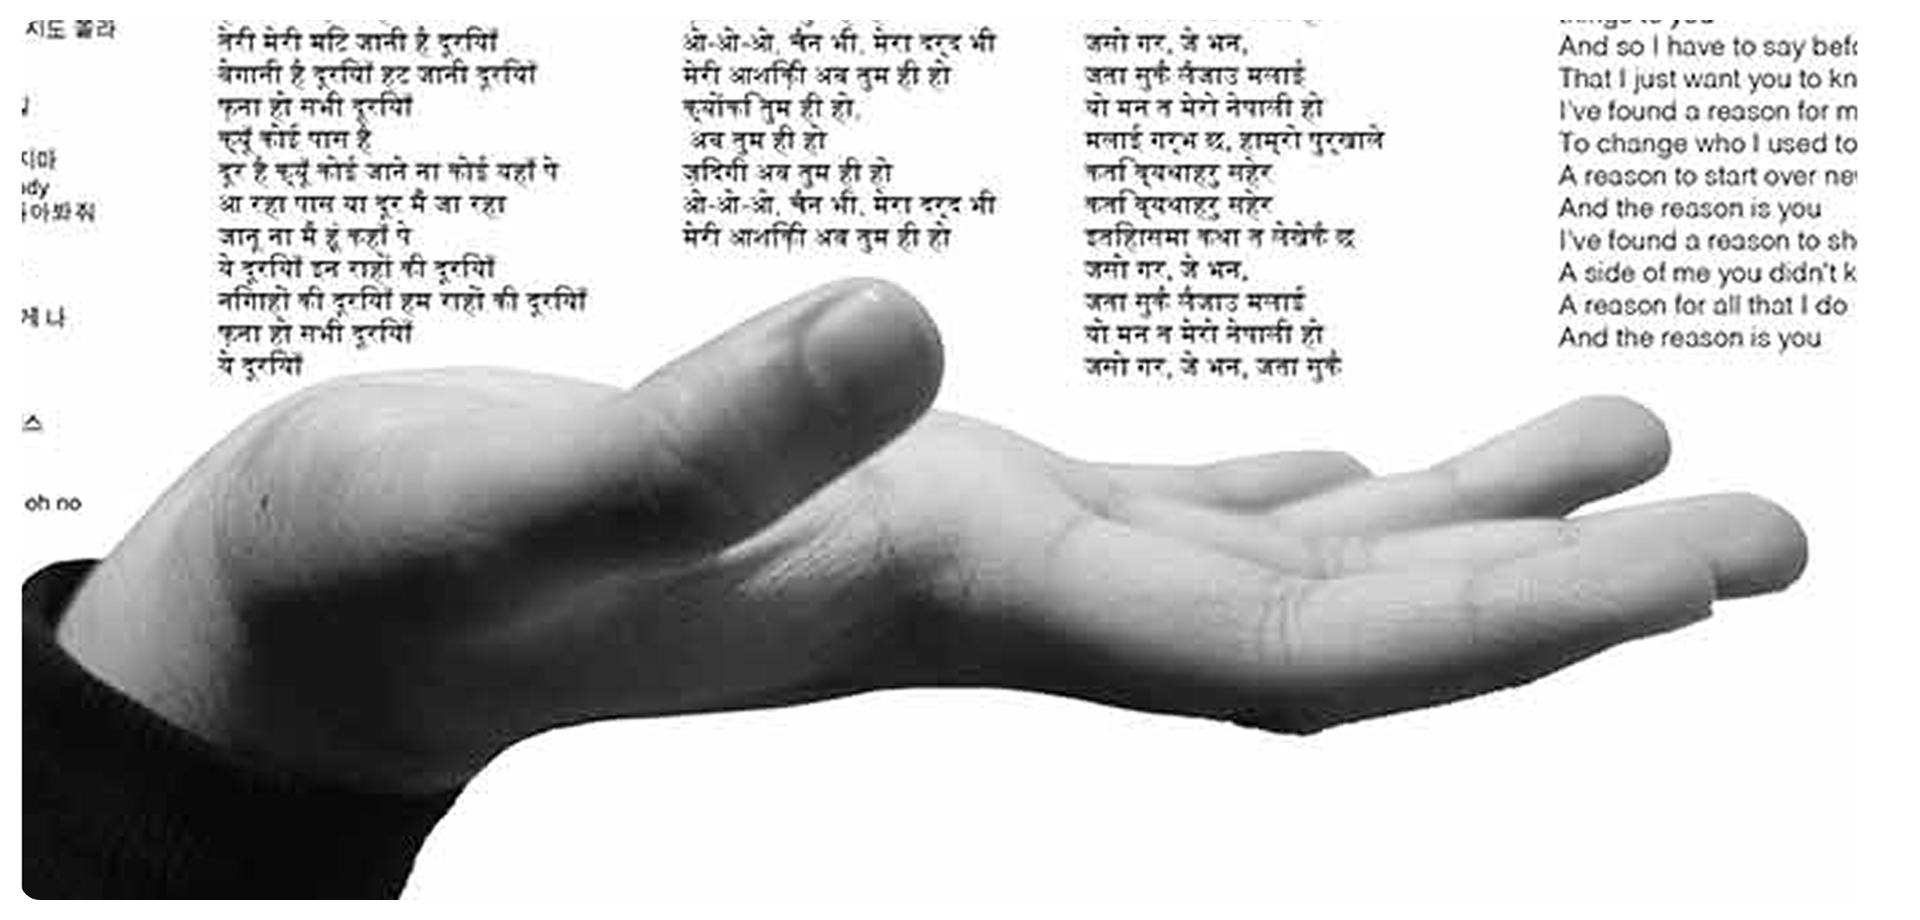 지도 몰라
तेरी मेरी मटि जानी है दूरयिाँ
बेगानी है दूरयिाँ हट जानी दूरयिाँ
फ़ना हो सभी दूरयिाँ
क्यूँ कोई पास है
दूर है क्यूँ कोई जाने ना कोई यहाँ पे
आ रहा पास या दूर मैं जा रहा
जानू ना मैं हूं कहाँ पे
ये दूरयिाँ इन राहों की दूरयिाँ
नगिाहों की दूरयिाँ हम राहों की दूरयिाँ
फ़ना हो सभी दूरयिाँ
ये दूरयिाँ
oh no
ओ-ओ-ओ, चैन भी, मेरा दर्द भी
मेरी आशकिी अब तुम ही हो
क्योंकि तुम ही हो,
अब तुम ही हो
ज़दिगी अब तुम ही हो
ओ-ओ-ओ, चैन भी, मेरा दर्द भी
मेरी आशकिी अब तुम ही हो
जसो गर, जे भन,
जता सुकै लैजाउ मलाई
यो मन त मेरो नेपाली हो
मलाई गर्भ छ, हाम्रो पुर्खाले
कति व्यथाहरु सहेर
कति व्यथाहरु सहेर
इतहिासमा कथा त लेखेकै छ
जसो गर, जे भन,
जता सुकै लैजाउ मलाई
यो मन त मेरो नेपाली हो
जसो गर, जे भन, जता सुकै
things to you
And so I have to say
That I just want you to
I've found a reason for
To change who I used to
A reason to start over
And the reason is you
I've found a reason to
A side of me you didn't
A reason for all that I do
And the reason is you